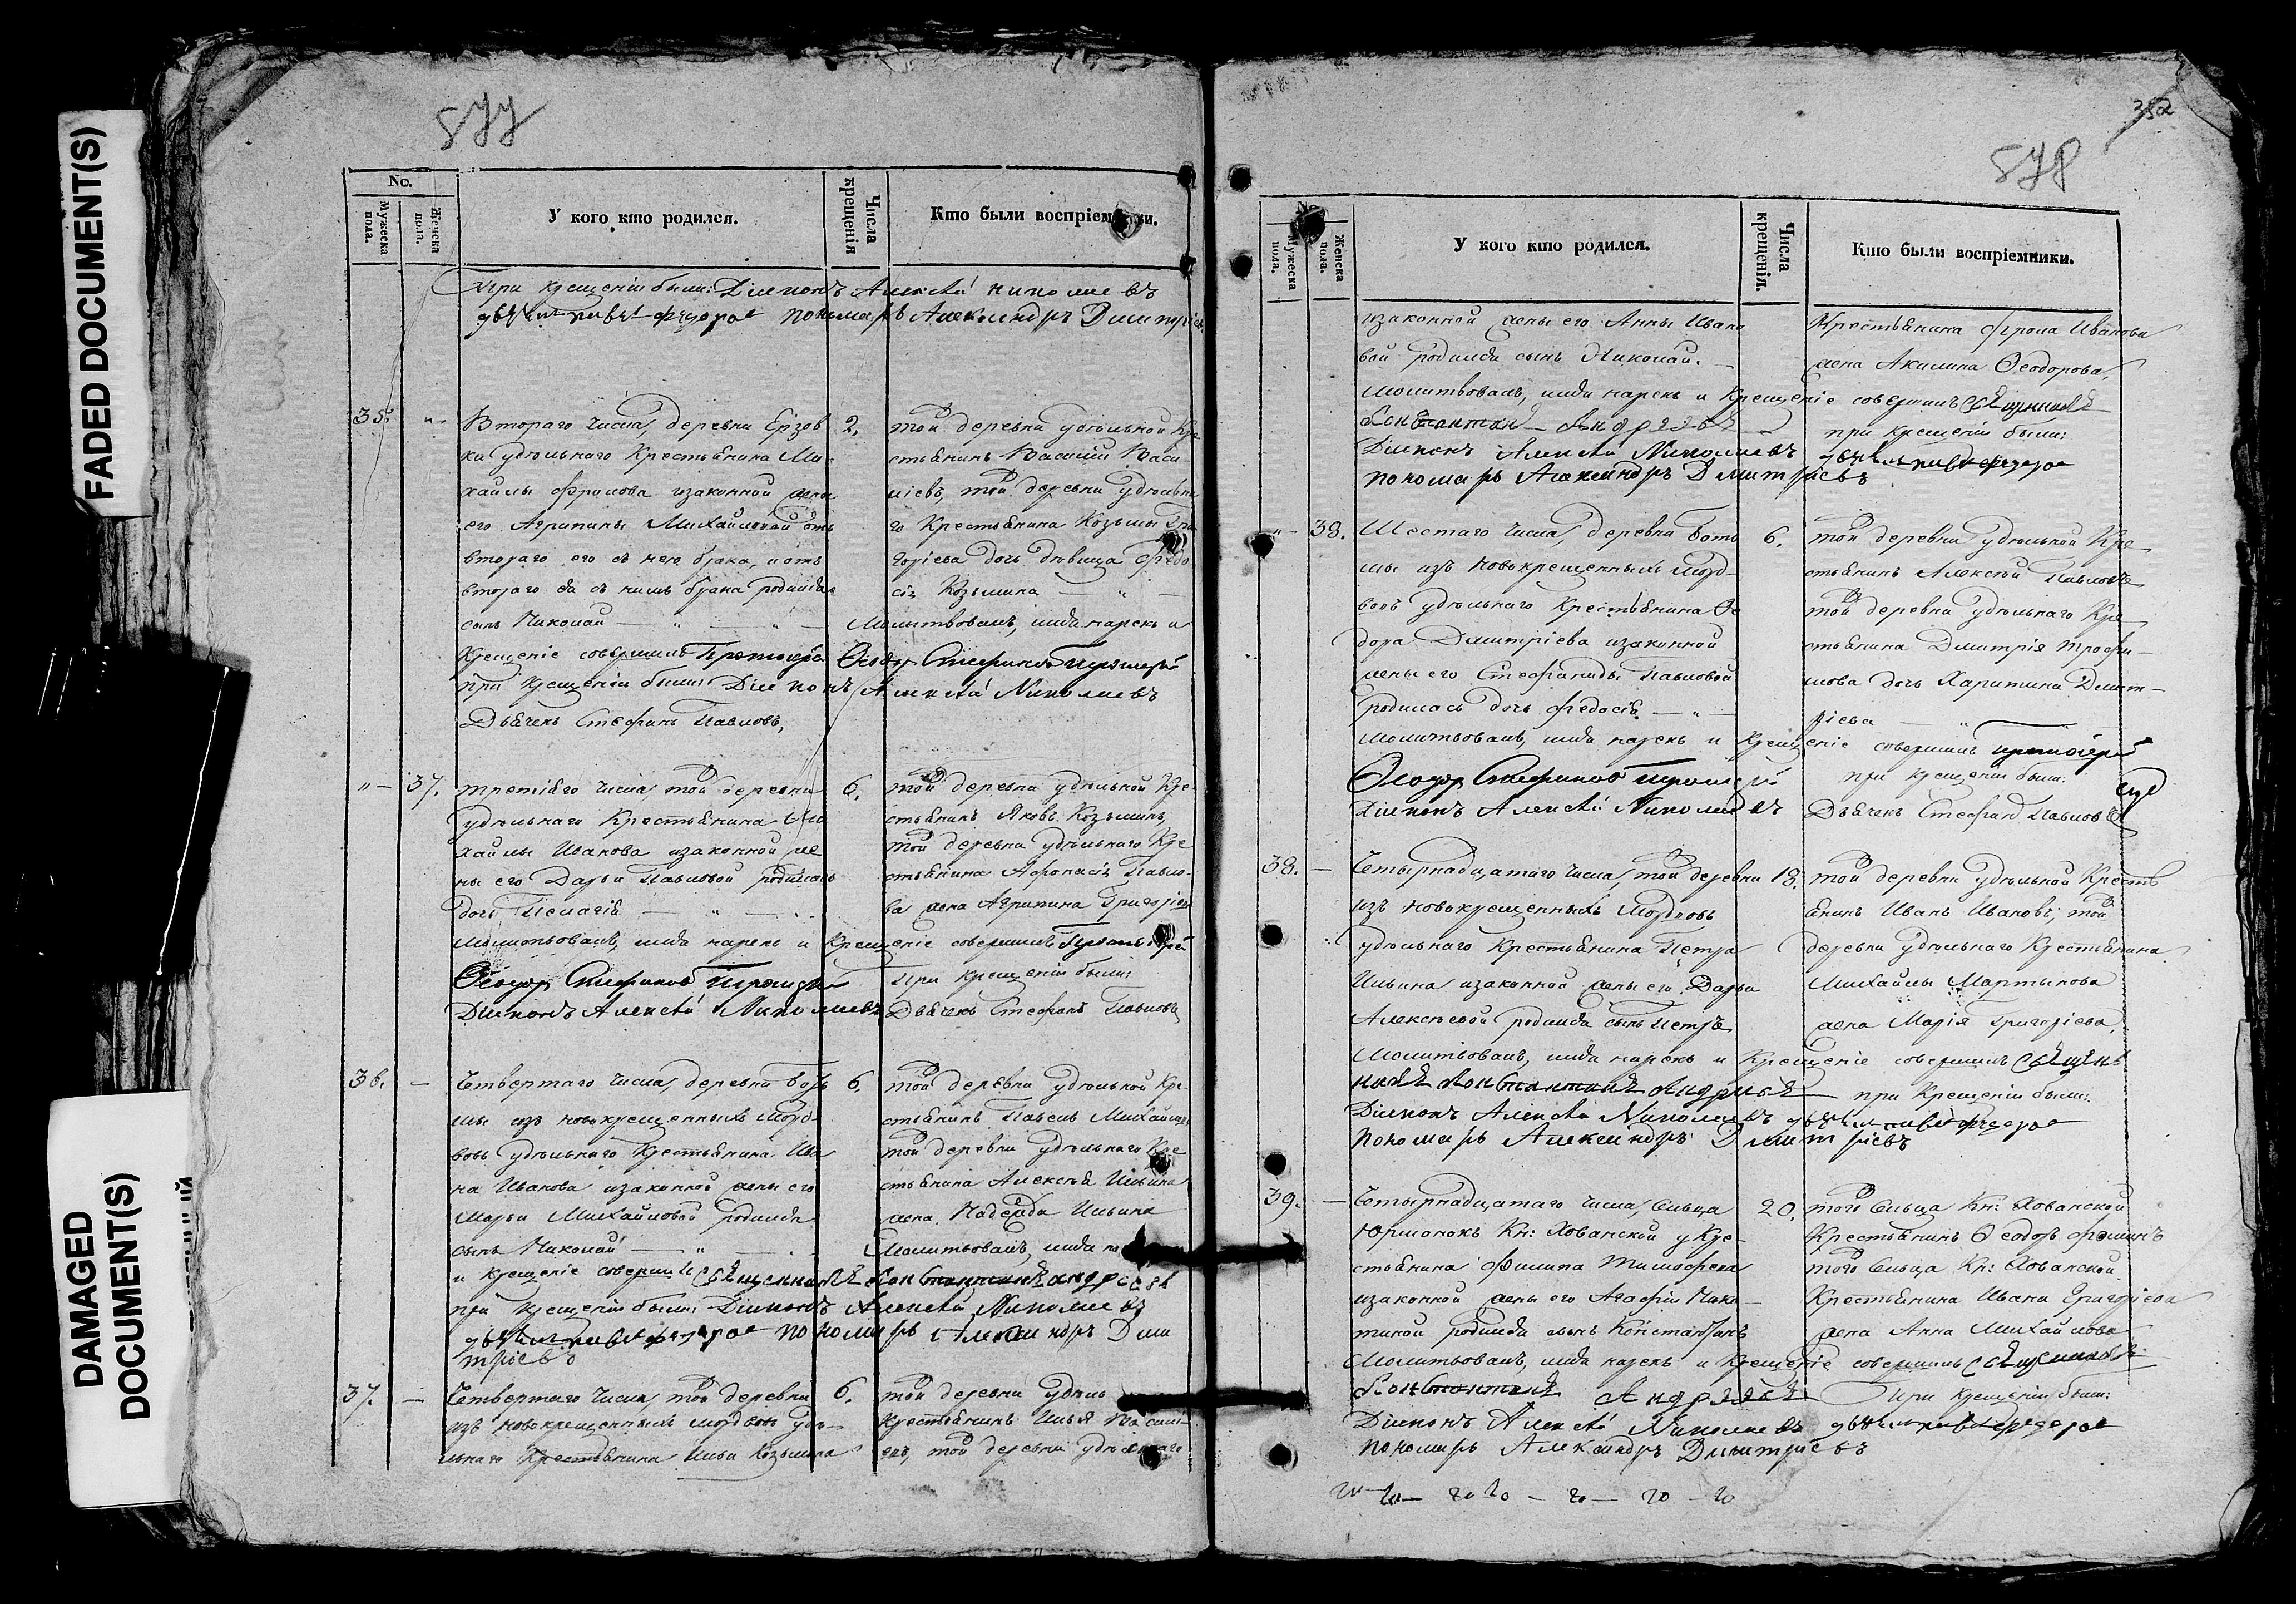 FADED DOCUMENT(S)
DAMAGED
DOCUMENT(S)
577
No.
Мужеска пола.
Женска пола.
У кого кто родился.
Числа крещенія
Кто были воспріемники.
При крещеніи были: Діаконъ Алексѣй Николаевъ
пономарь Александръ Димитріевъ
35. "
Втораго числа, деревни Ерзов
ки удѣльнаго Крестьянина Ми-
хайлы Фролова и законной жены
его Агрипины Михайловой отъ
втораго его съ нею брака, и отъ
втораго ея съ нимъ брака родился
сынъ Николай — " — " —
2.
той деревни удѣльной Кре
стьянинъ Василий Васи-
лієвъ, той деревни удѣльна
го Крестьянина Козьмы Гри
горієва дочь дѣвица Ѳедо
сія Козьмина — " —
Молитвовалъ, имя нарекъ и
Крещеніе совершилъ Протоіерей Ѳеодоръ Стефановъ
при крещеніи были: Діаконъ Алексѣй Николаевъ
Дьячекъ Стефанъ Павловъ,
" — 37.
третьяго числа, той деревни
удѣльнаго Крестьянина Ми
хайлы Иванова и законной же
ны его Дарьи Павловой родилась
дочь Пелагія — " —
6.
той деревни удѣльной Кре
стьянинъ Яковъ Козьминъ,
той деревни удѣльнаго Кре
стьянина Афонасія Павло-
ва жена Агрипина Григорієва
молитвовалъ, имя нарекъ и Крещеніе совершилъ Протоіерей
Ѳеодоръ Стефановъ
При крещеніи были:
Діаконъ Алексѣй Николаевъ Дьячекъ Стефанъ Павловъ
36. —
Четвертаго числа, деревни Ботъ
мы изъ новокрещенныхъ Морд-
вовъ удѣльнаго Крестьянина Ива
на Иванова и законной жены его
Марьи Михайловой родился
сынъ Николай — " —
6.
той деревни удѣльной Кре-
стьянинъ Павелъ Михайловъ
той деревни удѣльнаго Кре
стьянина Алексѣя Ильина
жена Надежда Ильина
Молитвовалъ, имя на
и крещеніе совершилъ Священникъ Константинъ Андреевъ
при крещеніи были: Діаконъ Алексѣй Николаевъ
пономарь Александръ Дми
тріевъ
37. —
Четвертаго числа, той деревни
изъ новокрещенныхъ мордвовъ удѣ-
льнаго Крестьянина Ильи Козьмина
6.
той деревни удѣль
Крестьянинъ Илья Василі-
евъ, той деревни удѣльнаго
352
578
No.
Мужеска пола.
Женска пола.
У кого кто родился.
Числа крещенія.
Кто были воспріемники.
и законной жены его Анны Ивано
вой родился сынъ Николай. —
Крестьянина Фрола Иванова
жена Акилина Ѳеодорова,
молитвовалъ, имя нарекъ и Крещеніе совершилъ Священникъ
Константинъ Андреевъ
при крещеніи были:
Діаконъ Алексѣй Николаевъ
пономарь Александръ Димитріевъ
" — 38.
Шестаго числа, деревни Боть
мы изъ новокрещенныхъ морд-
вовъ удѣльнаго Крестьянина Ѳе
дора Дмитрієва и законной
жены его Стефаниды Павловой
родилась дочь Ѳедосія — " —
6.
той деревни удѣльной Кре-
стьянинъ Алексѣй Павловъ
той деревни удѣльнаго Кре
стьянина Димитрія Трофи-
мова дочь Харитина Дмит-
рієва — " —
Молитвовалъ, имя нарекъ и Крещеніе совершилъ протоіерей
Ѳеодоръ Стефановъ
при крещеніи были:
Діаконъ Алексѣй Николаевъ Дьячекъ Стефанъ Павловъ
38. —
Четырнадцатаго числа, той деревни
изъ новокрещенныхъ Мордвовъ
удѣльнаго Крестьянина Петра
Ильина и законной жены его Дарьи
Алексѣевой родился сынъ Петръ
18.
той деревни удѣльной Кресть
янинъ Иванъ Ивановъ, той
деревни удѣльнаго Крестьянина
Михайлы Мартынова
жена Марія Григорієва,
Молитвовалъ, имя нарекъ и Крещеніе совершилъ Священ
никъ Константинъ Андреевъ — при Крещеніи были:
Діаконъ Алексѣй Николаевъ
пономарь Александръ Димитріевъ
39. —
Четырнадцатаго числа, Сельца
Юрманокъ Кн: Хованской у Кре-
стьянина Филипа Тимофеева
и законной жены его Агафіи Ники-
тиной родился сынъ Константинъ
20.
того Сельца Кн: Хованской
Крестьянинъ Ѳеодоръ Фоминъ
того Сельца Кн: Хованской
Крестьянина Ивана Григорієва
жена Анна Михайлова
Молитвовалъ, имя нарекъ и Крещеніе совершилъ Священникъ
Константинъ Андреевъ При крещеніи были:
Діаконъ Алексѣй Николаевъ
пономарь Александръ Димитріевъ